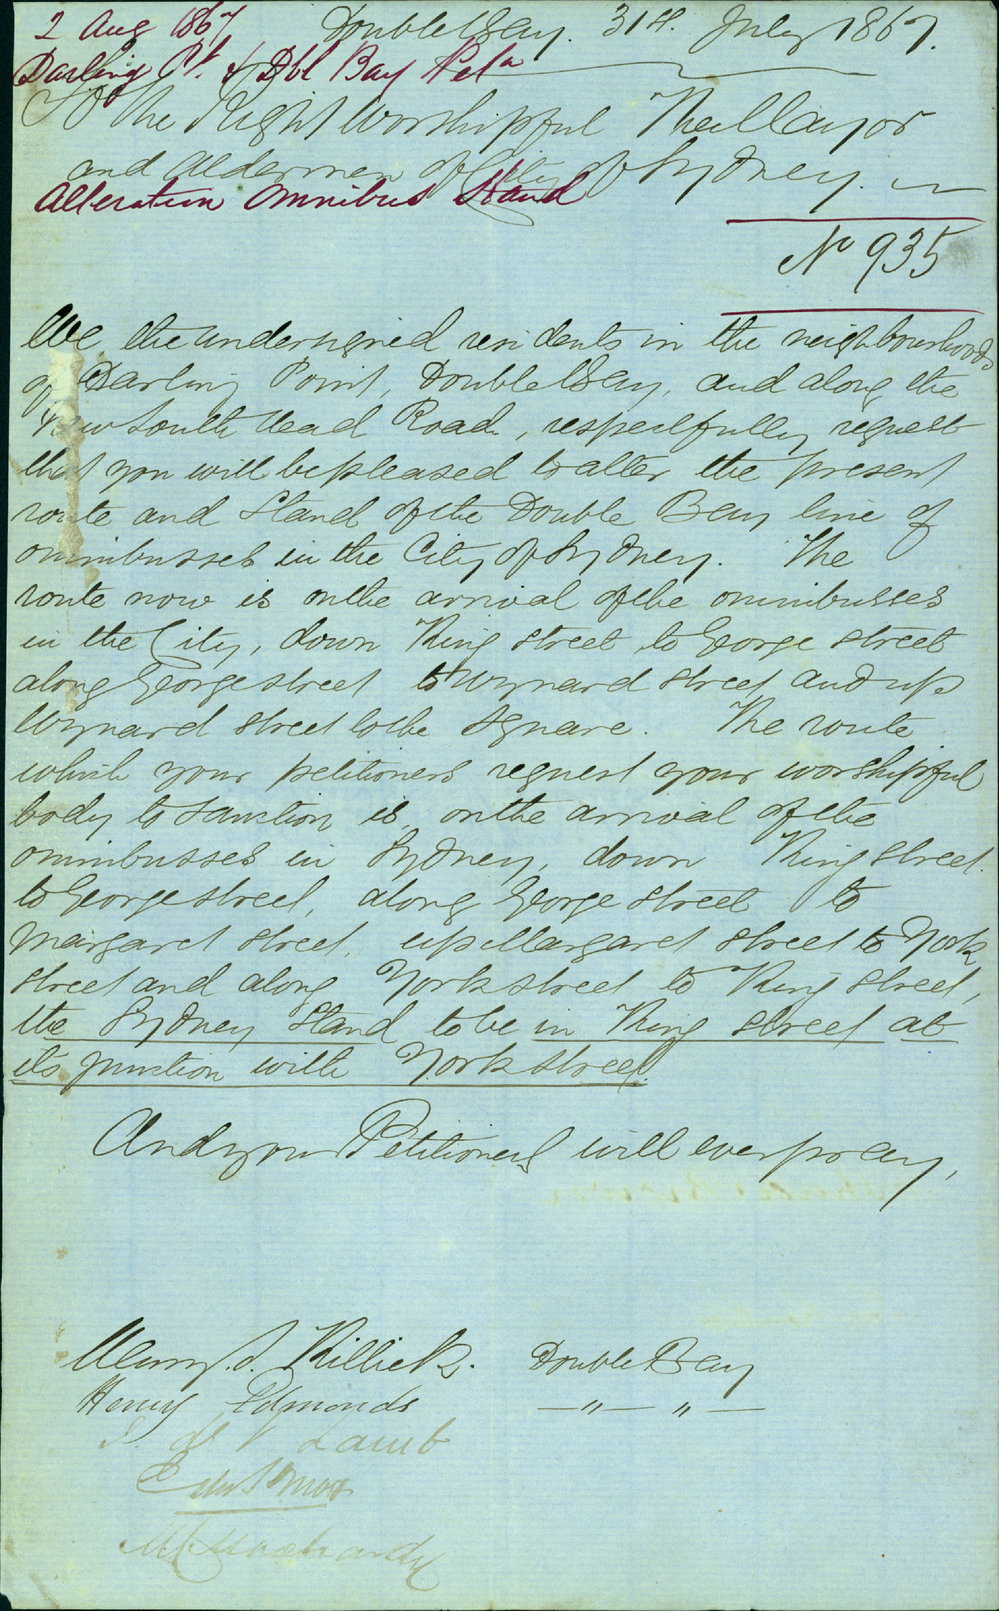 2 Aug 1867
Double Bay. 31st. July 1867.
Darling Pt. & Dbl Bay Petn
To the Right Worshipful The Mayor
and Aldermen of City of Sydney.
Alteration Omnibus Stand
No 935
We the undersigned residents in the neighbourhoods
of Darling Point, Double Bay, and along the
New South Head Road, respectfully request
that you will be pleased to alter the present
route and Stand of the Double Bay line of
omnibusses in the City of Sydney. The
route now is on the arrival of the omnibusses
in the City, down King street to George street
along George street to Wynard street and up
Wynard street to the square. The route
which your petitioners request your worshipful
body to sanction is, on the arrival of the
omnibusses in Sydney, down King street.
to George street, along George street to
Margaret street, up Margaret street to York
street and along York street to King street,
the Sydney Stand to be in King street at
its junction with York street.
And your Petitioners will ever pray,
Henry S. Killick. Double Bay
Henry Edmonds —"—"—
Lamb